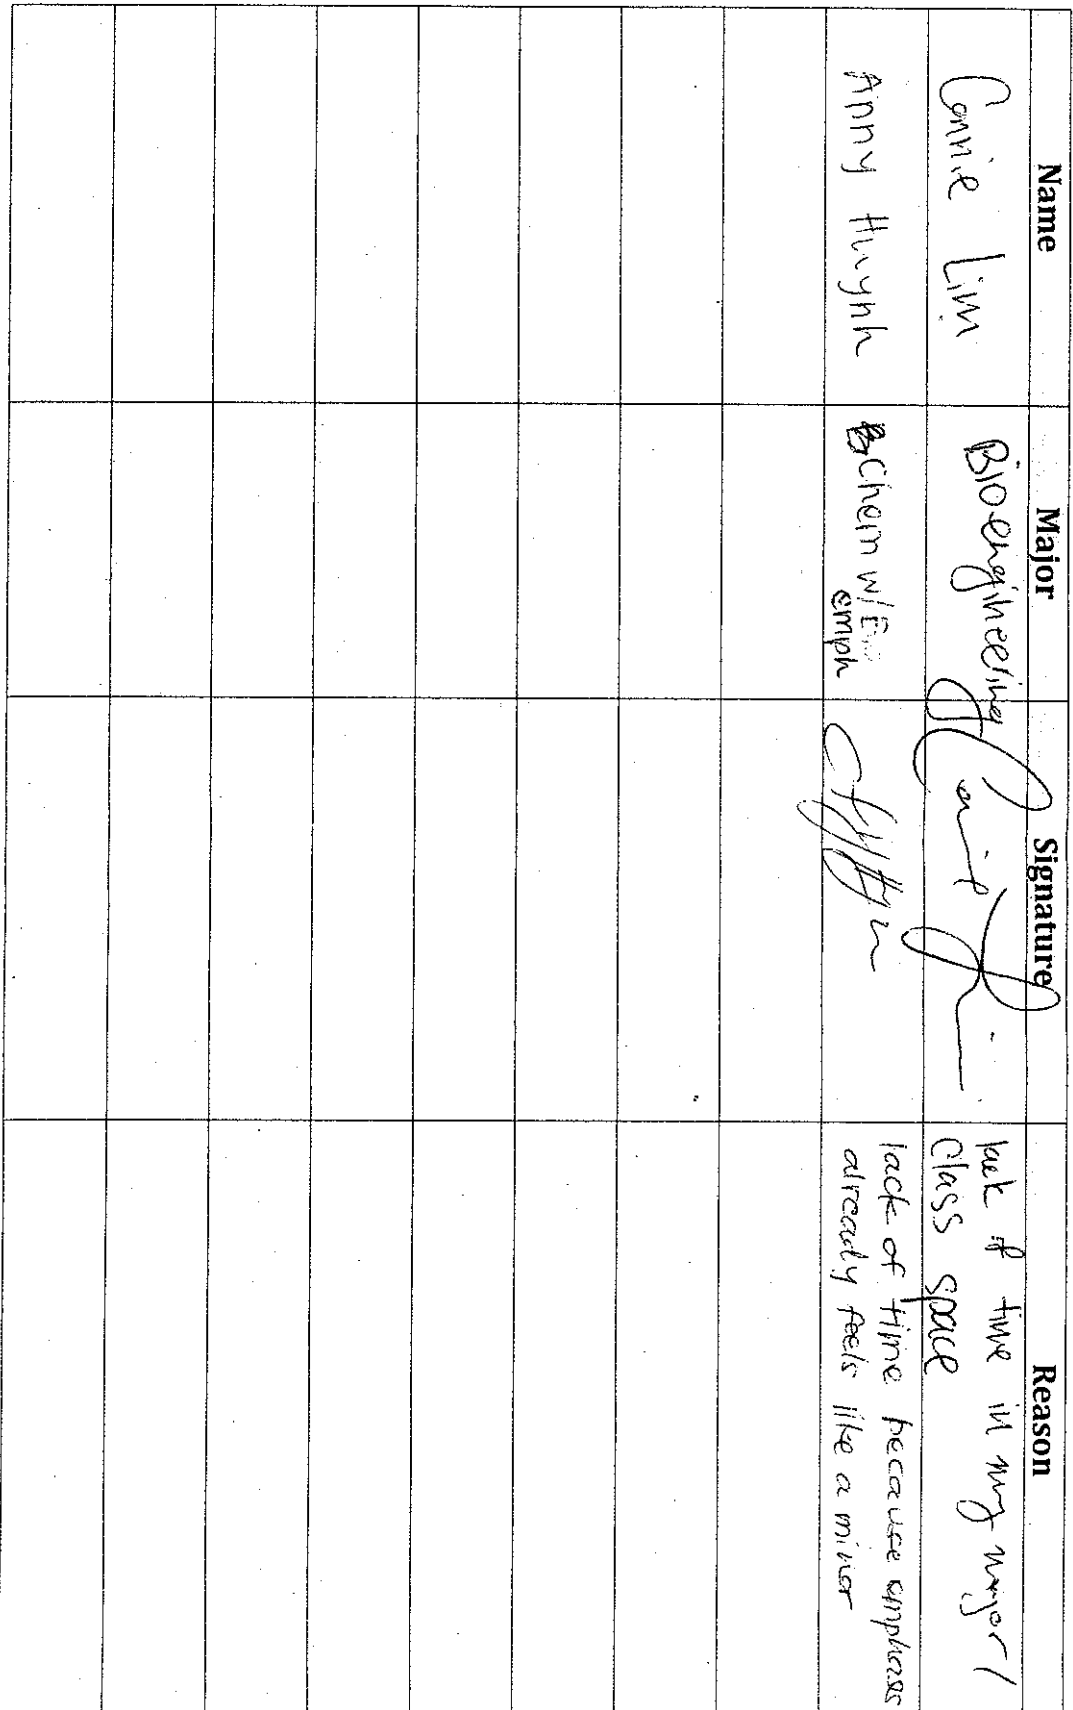 Name Major Signature Reason
Connie Lim Bioengineering lack of time in my major/
class space
Anny Huynh Chem w/ lack of time because emphases
emph already feels like a minor